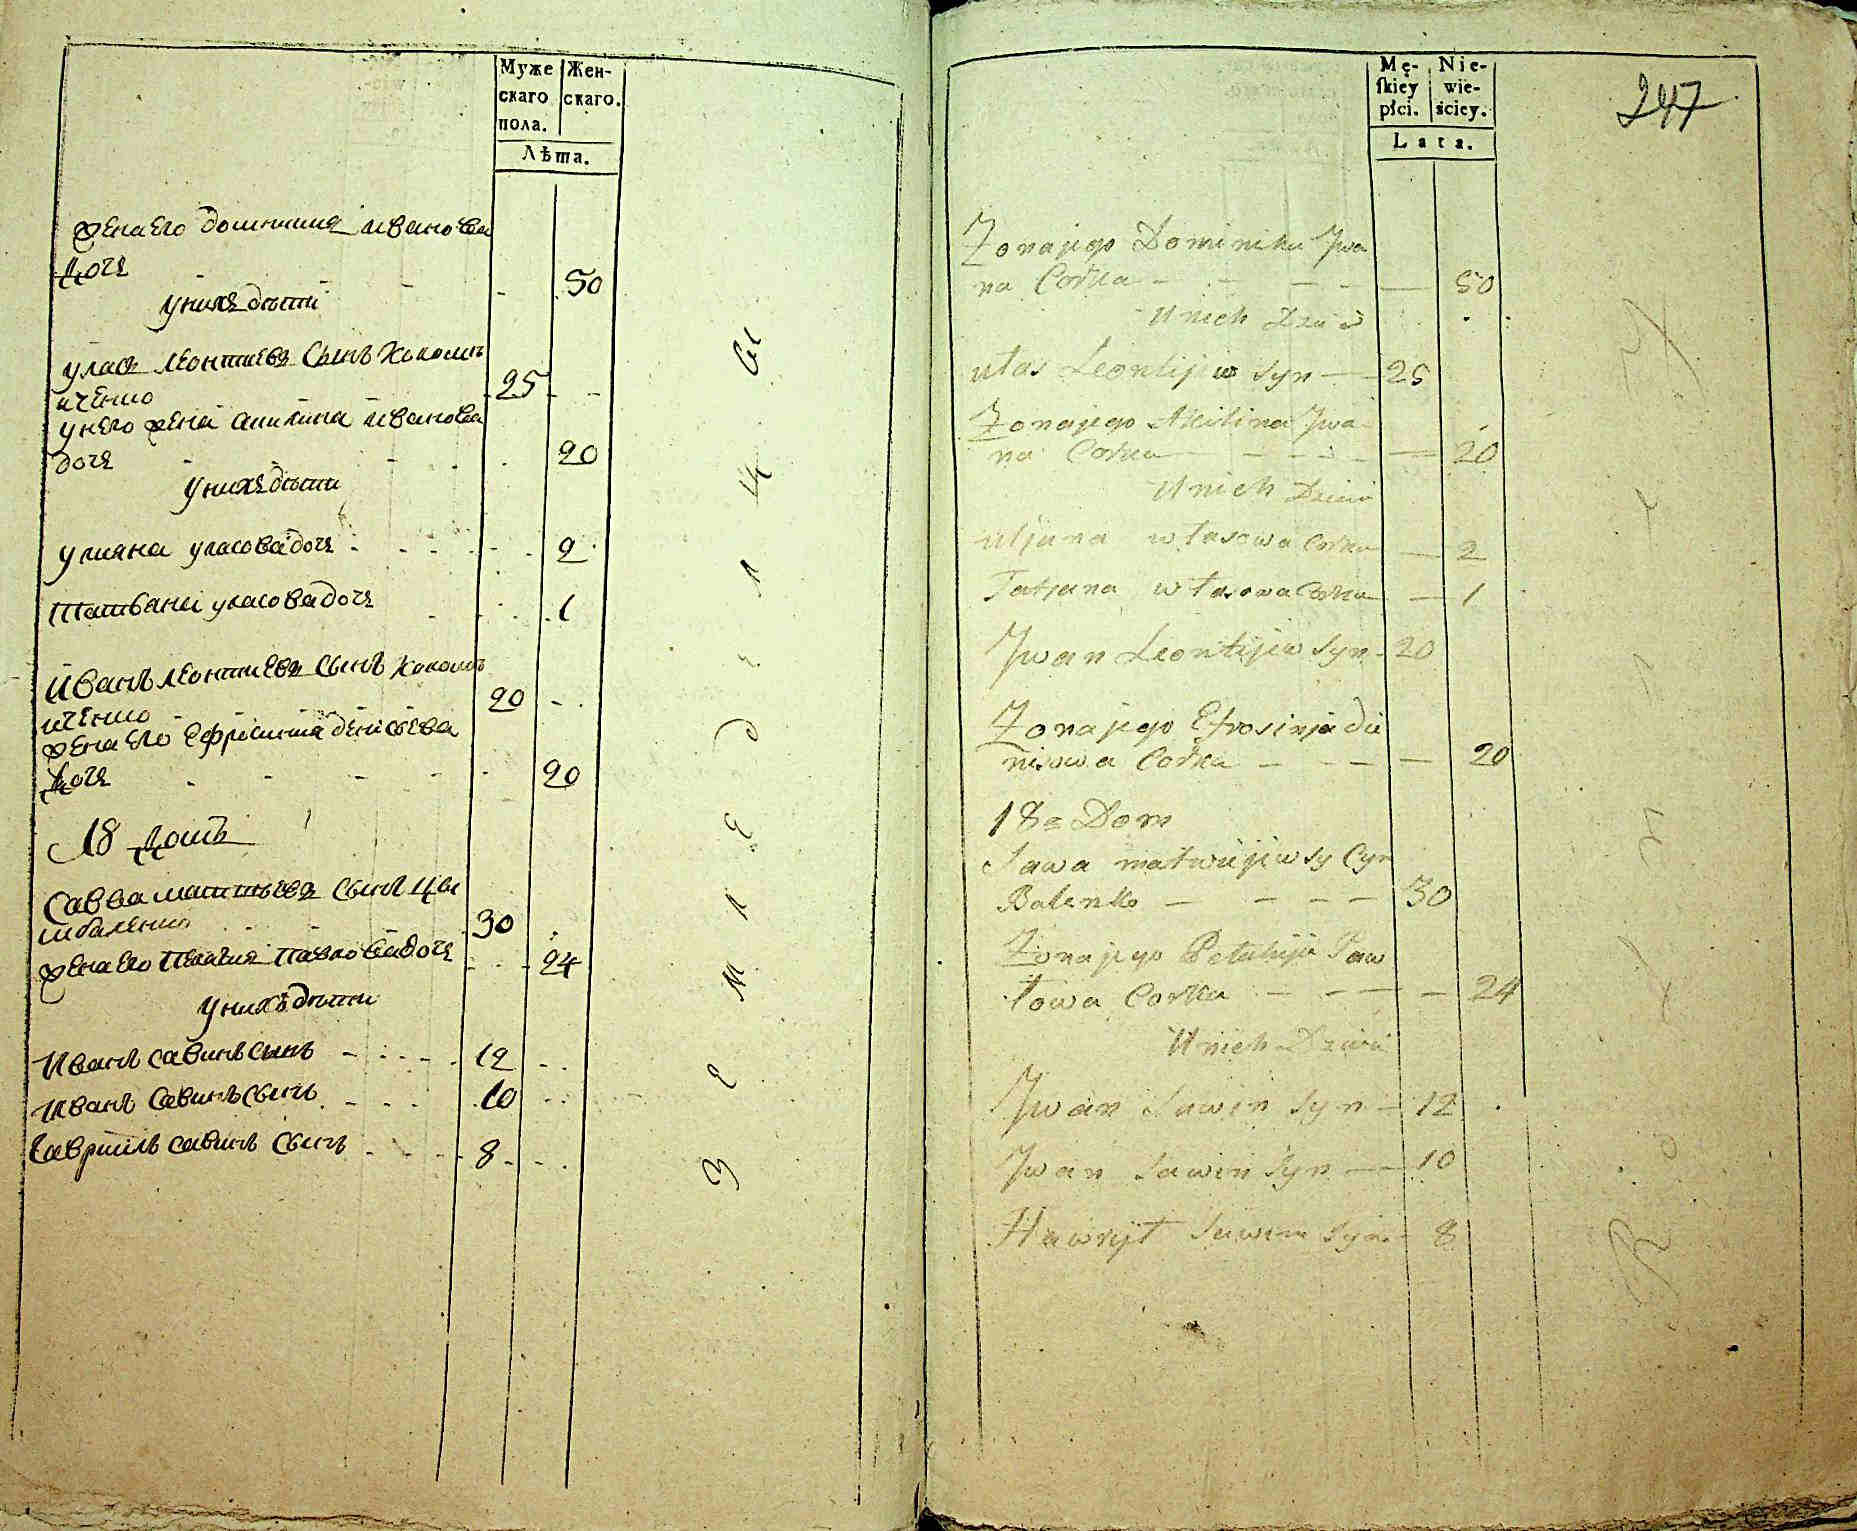 Муже
скаго
пола.
Жен-
скаго.
Лѣта.
жена его домникия иванова
дочь 50
у них дѣти
улас леонтиевъ сынъ хокомѣ
иченко 25
у него жена акилина иванова
дочь 20
у нихъ дѣти
улияна уласова дочь 2
татьяна уласова дочь 1
иванъ леонтиевъ сынъ
иченко 20
жена его ефросиния денисова
дочь 20
18 домъ
Савва матвѣевъ сынъ цы
балѣнко 30
жена его Пелагия павлова дочь 24
у нихъ дѣти
Иванъ савинъ сынъ 12
Иванъ савинъ сынъ 10
Гавриилъ савинъ сынъ 8
З е м л е д е л ц ы
Mę-
ſkiey
płci.
Nie-
wie-
ściey.
Lata.
247
Żona jego Dominika Jwa
na Corka 50
U nich Dzieci
ułas Leontijew syn 25
Żona jego Akilina Jwa
na Corka 20
U nich Dzieci
uljana własowa Corka 2
Tatjana własowa Corka 1
Jwan Leontijew syn 20
Żona jego Efrosinja de
nisowa Corka 20
18 Dom
Sawa matwiejew sy Cyn
Balenko 30
Żona jego Pelahija Paw
łowa Corka 24
U nich Dzieci
Jwan Sawin syn 12
Jwan Sawin syn 10
Hawrył Sawin syn 8